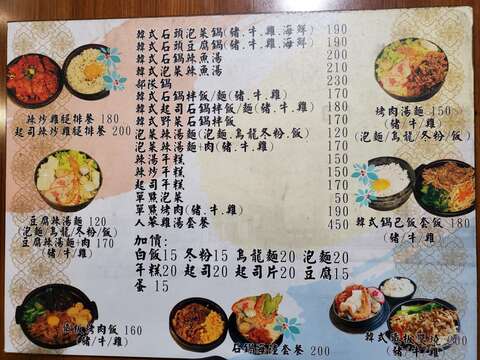 韓式石頭泡菜鍋(豬.牛.雞.海鮮) 190
韓式石頭豆腐鍋(豬.牛.雞.海鮮) 190
韓式石鍋辣魚湯 200
韓式泡菜辣魚湯 210
部隊鍋 230
韓式石鍋拌飯/麵(豬.牛.雞) 170
韓式起司石鍋拌飯/麵(豬.牛.雞) 180
韓式野菜石鍋拌飯 170
泡菜辣湯麵(泡麵.烏龍.冬粉.飯) 120
泡菜辣湯麵+肉(豬.牛.雞) 170
辣湯年糕 150
辣炒年糕 150
起司年糕 170
單點泡菜 50
單點烤肉(豬.牛.雞) 150
人蔘雞湯套餐 450
加價:
白飯15 冬粉15 烏龍麵20 泡麵20
年糕20 起司20 起司片20 豆腐15
蛋 15
辣炒雞腿排餐 180
起司辣炒雞腿排餐 200
豆腐辣湯麵 120
(泡麵/烏龍/冬粉/飯)
豆腐辣湯麵+肉 170
(豬/牛/雞)
烤肉湯麵 150
(豬/牛/雞)
(泡麵/烏龍/冬粉/飯)
韓式鍋巴飯套飯 180
(豬/牛/雞)
烤肉飯 160
(豬/牛/雞)
石鍋 套餐 200
韓式 200
(豬/牛/雞)